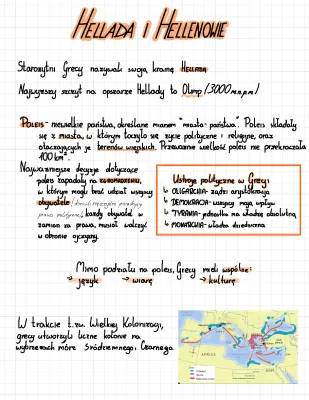 HELLADA I HELLENOWIE
Starożytni Grecy nazywali swoją krainę HELLADA
Najwyższy szczyt na obszarze Hellady to Olimp (3000 m n.p.m)
POLEIS- niewielkie państwa, określane mianem "miasta-państwa". Poleis składały
się z miasta, w którym toczyło się życie polityczne i religijne, oraz
otaczających je terenów wiejskich. Przeważnie wielkość poleis nie przekraczała
100 km²
Najważniejsze decyzje dotyczące
poleis zapadały na ZGROMADZENIU,
w którym mogli brać udział wszyscy
obywatele
prawa polityczne), każdy obywatel w
zamian za prawa, musiał walczyć
w obronie ojczyzny.
Ustroje polityczne w Grecji:
↳ OLIGARCHIA- rządzi arystokracja
↳ DEMOKRACJA- wszyscy mają wpływ
↳ TYRANIA- jednostka ma władzę absolutną
↳ MONARCHIA- władza dziedziczna
Mimo podziału na poleis, Grecy mieli wspólne:
↳ język ↳ wiarę ↳ kulturę
W trakcie t.zw. Wielkiej Kolonizacji,
grecy utworzyli liczne kolonie na
wybrzeżach mórz Śródziemnego i Czarnego.
AFRICA
EGIPT